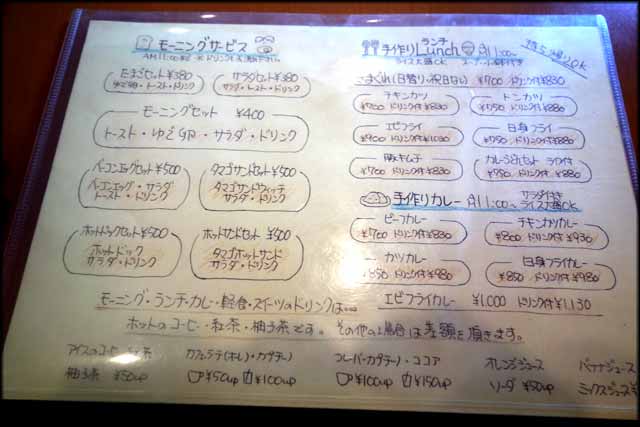 モーニングサービス
AM11:00まで
たまごセット ¥380
ゆで卵・トースト・ドリンク
サラダセット ¥380
サラダ・トースト・ドリンク
モーニングセット ¥400
トースト・ゆで卵・サラダ・ドリンク
ベーコンエッグセット ¥500
ベーコンエッグ・サラダ
トースト・ドリンク
タマゴサンドセット ¥500
タマゴサンドウィッチ
サラダ・ドリンク
ホットドックセット ¥500
ホットドック
サラダ・ドリンク
ホットサンドセット ¥500
タマゴホットサンド
サラダ・ドリンク
ランチ
手作りLunch AM11:00〜
ライス大盛OK スープ・小鉢付き
持ち帰りOK
(日替り・祝日ない) ¥700 ドリンク付 ¥830
チキンカツ
¥700 ドリンク付 ¥830
トンカツ
¥750 ドリンク付 ¥880
エビフライ
¥900 ドリンク付 ¥1,030
白身フライ
¥750 ドリンク付 ¥880
豚キムチ
¥700 ドリンク付 ¥830
¥750 ドリンク付 ¥880
手作りカレー AM11:00〜
サラダ付き
ライス大盛OK
ビーフカレー
¥700 ドリンク付 ¥830
チキンカツカレー
¥800 ドリンク付 ¥930
カツカレー
¥850 ドリンク付 ¥980
白身フライカレー
¥850 ドリンク付 ¥980
エビフライカレー ¥1,000 ドリンク付 ¥1,130
モーニング・ランチ・カレー・軽食・スイーツのドリンクは…
ホットのコーヒー・紅茶・柚子茶です。その他の場合は差額を頂きます。
アイスのコーヒー・紅茶
柚子茶 ¥50up
カフェラテ(オレ)・カプチーノ
¥50up ¥100up
フレーバーカプチーノ・ココア
¥100up ¥150up
オレンジジュース
ソーダ ¥50up
バナナジュース
ミックスジュース